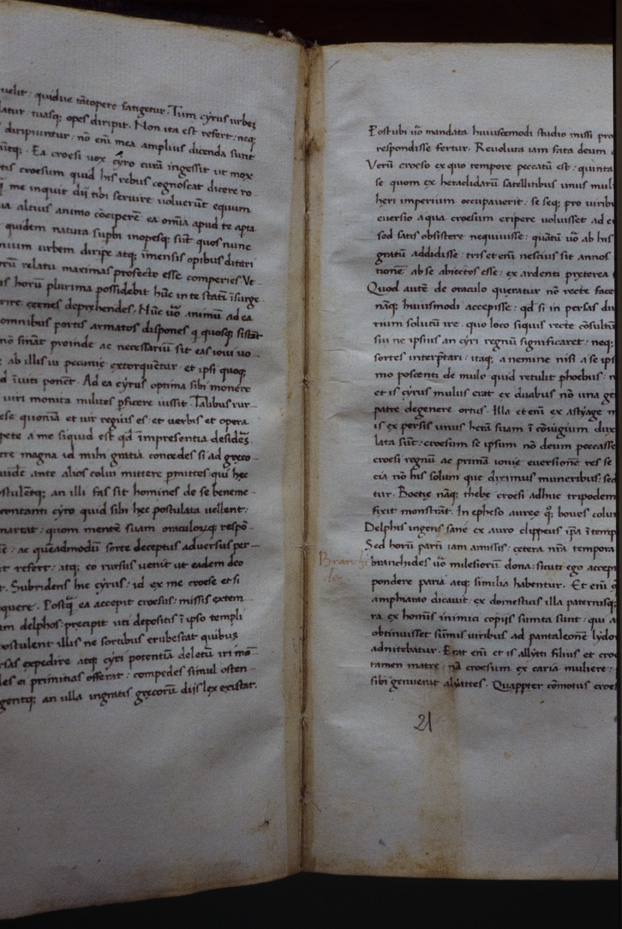 uelit · quidue tātopere satagetur · Tum cyrus urbē
latur tuasq; opes diripit. Non ita est refert: neq;
diripiuntur · nō eni mea amplius dicenda sunt
Ea croesi uox cyro curā ingessit ut mox
croesum quid his rebus cognoscat dicere ro-
me inquit dij tibi seruire uoluerūt equum
altius animo cōeiperē ea oīa apud te apta
quidem natura supbi inopesq; sūt quos nunc
urbem diripe atq; īmensis opibus ditari
relatu maximas profecto esse comperies Ve-
horū plurima possidebit hūc in te statī īsurge
cernes deprehendes. Nūc uō animū ad ea
omnibus portis armatos dispones q quosq; sistāt
nō sināt proinde ac necessariū sit eas ioui uo-
ab illis ui pecunie extorquētur et ipsi quoq;
īuiti ponēt. Ad ea cyrus optima sibi monere
uiri monita milites pficere iussit. Talibus rur-
ese quoniā et uir regius es et uerbis et opera
pete a me siquid est qđ impresentia desidēs
magna id mihi gratia concedes si ad greco-
ante alios colui mittere pmittes qui hec
an illi fas sit homines de se beneme-
cyro quid sibi hec postulata uellent:
quom mentē suam oraculorūq; respō-
ac quēadmodū sorte deceptus aduersus per-
refert: atq; eo rursus uenit ut eadem deo
Subridens hic cyrus: id ex me croese et si
Postq̄ ea accepit croesus: missis extem-
delphos precipit uti depositis ī ipso templi
postulent illis ne sortibus erubescat quibus
expedire atq; cyri potentiā deletū iri mo-
primitias offerāt: compedes simul osten-
an ulla ingratis grecorū dijs lex existat.
Postubi uō mandata huiuscemodi studio missi pro
respondisse fertur. Reuoluta iam fata deum
Verū croeso ex quo tempore peccatū est: quinta
se quom ex heraclidarū satellitibus unus mul
heri imperium occupauerit: se seq; pro uirib
euersio a qua croesum eripere uoluisset ad e
sed fatis obsistere nequiuisse: quātū uō ab his
gratū addidisse: tris etenī nescius sit annos
tione ab se abiectos esse: ex ardenti preterea
Quod autē de oraculo queratur nō recte face
nāq; huiusmodi accepisse: qđ si in persas du
rium solutū ire · quo loco siquis recte cōsultū
siu ne ipsius an cyri regnū significaret: neq;
sortes interptari: itaq; a nemine nisi a se ips
mo poscenti de mulo quid retulit phoebus n
et is cyrus mulus erat ex duabus nō una ge
patre degenere ortus. Illa etenī ex astyage m
is ex persis unus herā suam ī cōiugium dux
lata sūt: croesum se ipsum nō deum peccasse
croesi regnū ac primā ionie euersionē res se
cia nō his solum que diximus muneribus: sed
tur. Boetię nāq; thebe croesi adhuc tripodem
fixit monstrāt. In epheso auree q; boues colu
Delphis ingens sane ex auro clippeus īpa ītemp
Sed horū partī iam amissis: cetera nr̄a tempora
branchides uō milesiorū dona: sicuti ego accep
pondere paria atq; similia habentur. Et enī q
amphiarao dicauit: ex domesticis illa paternisq;
ra ex homīs inimici copijs sumta sunt: qui a
obtinuisset sūmis uiribus ad pantaleonē lydo
adnitebatur. Erat enī et is allytti filius et croe
tamen matre: nā croesum ex caria muliere:
sibi genuerat alyattes. Quappter cōmotus croe
Branchi
21